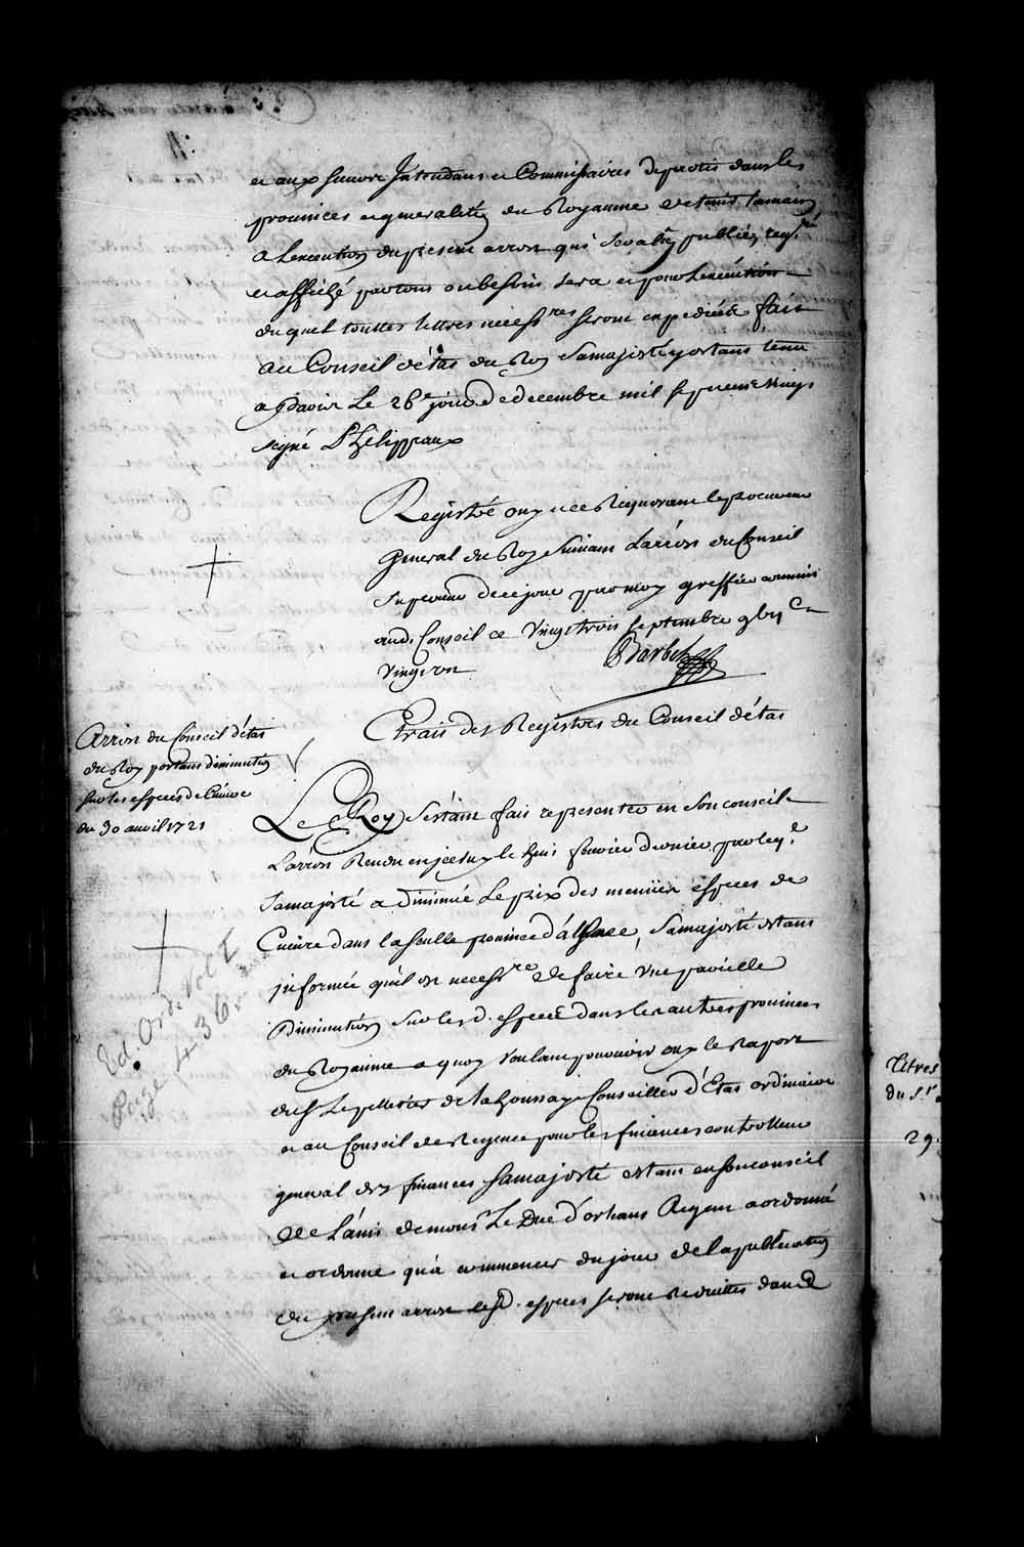 et aux sieurs Intendans et Commissaires departis dans les
provinces et generalités du Royaume de tenir la main
a L'execution du present arrest qui sera leu, publié, reg.ré
et affiché partout ou besoin sera et pour L'execution
duquel touttes lettres necess.res seront expediées fait
au Conseil d'état du Roy Sa majesté y estant tenu
a Paris Le 26e jour de decembre mil sept cent vingt
signé Phelippeaux
Registré ouy et ce Requerant le procureur
general du Roy Suivant L'arrest du Conseil
Superieur de ce jour par moy greffier commis
aud. Conseil ce Vingt trois septembre
vingt un
Barbel
Extrait des Registres du Conseil d'état
Arrest du Conseil d'état
du Roy portant diminution
sur les especes de Cuivre
du 30 avril 1721
Le Roy S'étant fait representer en son conseil
L'arrest Rendu en jceluy le huit fevrier dernier par leq.l
Sa majesté a diminué Le prix des menües especes de
Cuivre dans la seulle province d'alsace, Sa majesté estant
jnformée qu'il est necess.re de faire une pareille
Diminution sur lesd. especes dans les autres provinces
du Royaume a quoy voulant pourvoir ouy le Raport
du S. Le pelletier de la houssaye Conseiller d'Etat ordinaire
et au Conseil de Regence pour les finances controlleur
general des finances Sa majesté estant en son conseil
de L'avis de mons.r Le Duc d'orleans Regent a ordonné
et ordonne qu'a commencer du jour de la publication
du present arrest lesd. especes seront Reduittes dans
Ed. Ord. Vol I
Page 436
Titres
du S.r
29